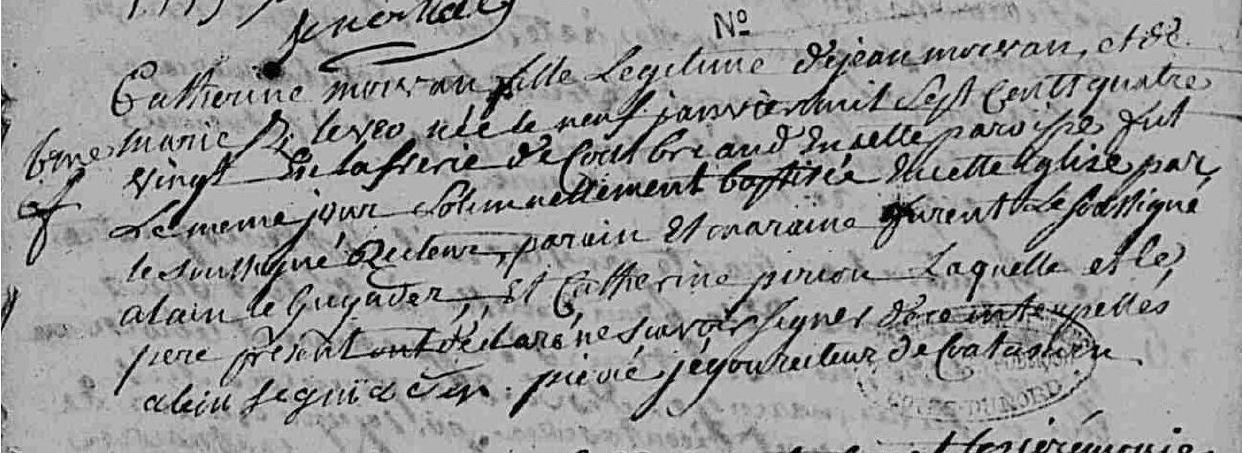 Nº
Catherine morvan fille Legitime de jean morvan, et de
bme marie le veo née le neuf janvier mil sept Cent quatre
vingt en la frerie de Coatbriand en cette paroisse fut
Le meme jour solennellement baptisée en cette Eglise par
le soussigné Recteur, parain Et maraine furent Le soussigné
alain le Guyader, Et Catherine piriou Laquelle et le
pere présent ont déclaré ne scavoir signer de ce interpellés
alain le guiader. jégou recteur de
DU NORD